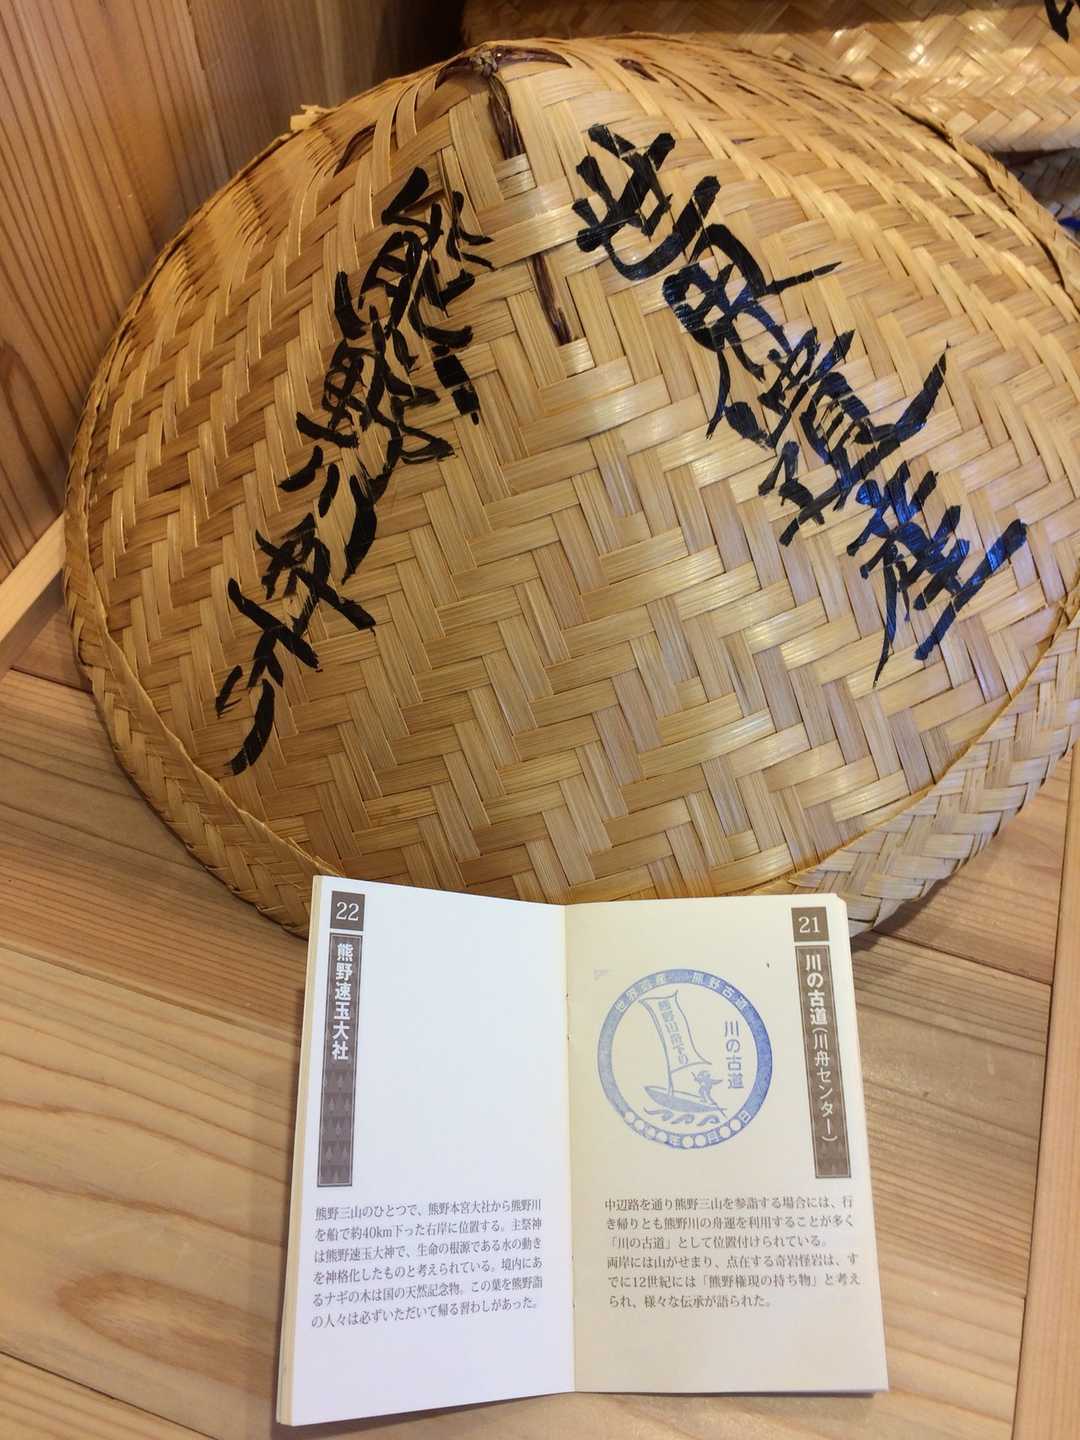 世界遺産
熊野川
22
熊野速玉大社
熊野三山のひとつで、熊野本宮大社から熊野川
を船で約40km下った右岸に位置する。主祭神
は熊野速玉大神で、生命の根源である水の動き
を神格化したものと考えられている。境内にあ
るナギの木は国の天然記念物。この葉を熊野詣
の人々は必ずいただいて帰る習わしがあった。
21
川の古道(川舟センター)
世界遺産 熊野古道
熊野川舟下り
川の古道
年 月 日
中辺路を通り熊野三山を参詣する場合には、行
き帰りとも熊野川の舟運を利用することが多く
「川の古道」として位置付けられている。
両岸には山がせまり、点在する奇岩怪岩は、す
でに12世紀には「熊野権現の持ち物」と考え
られ、様々な伝承が語られた。